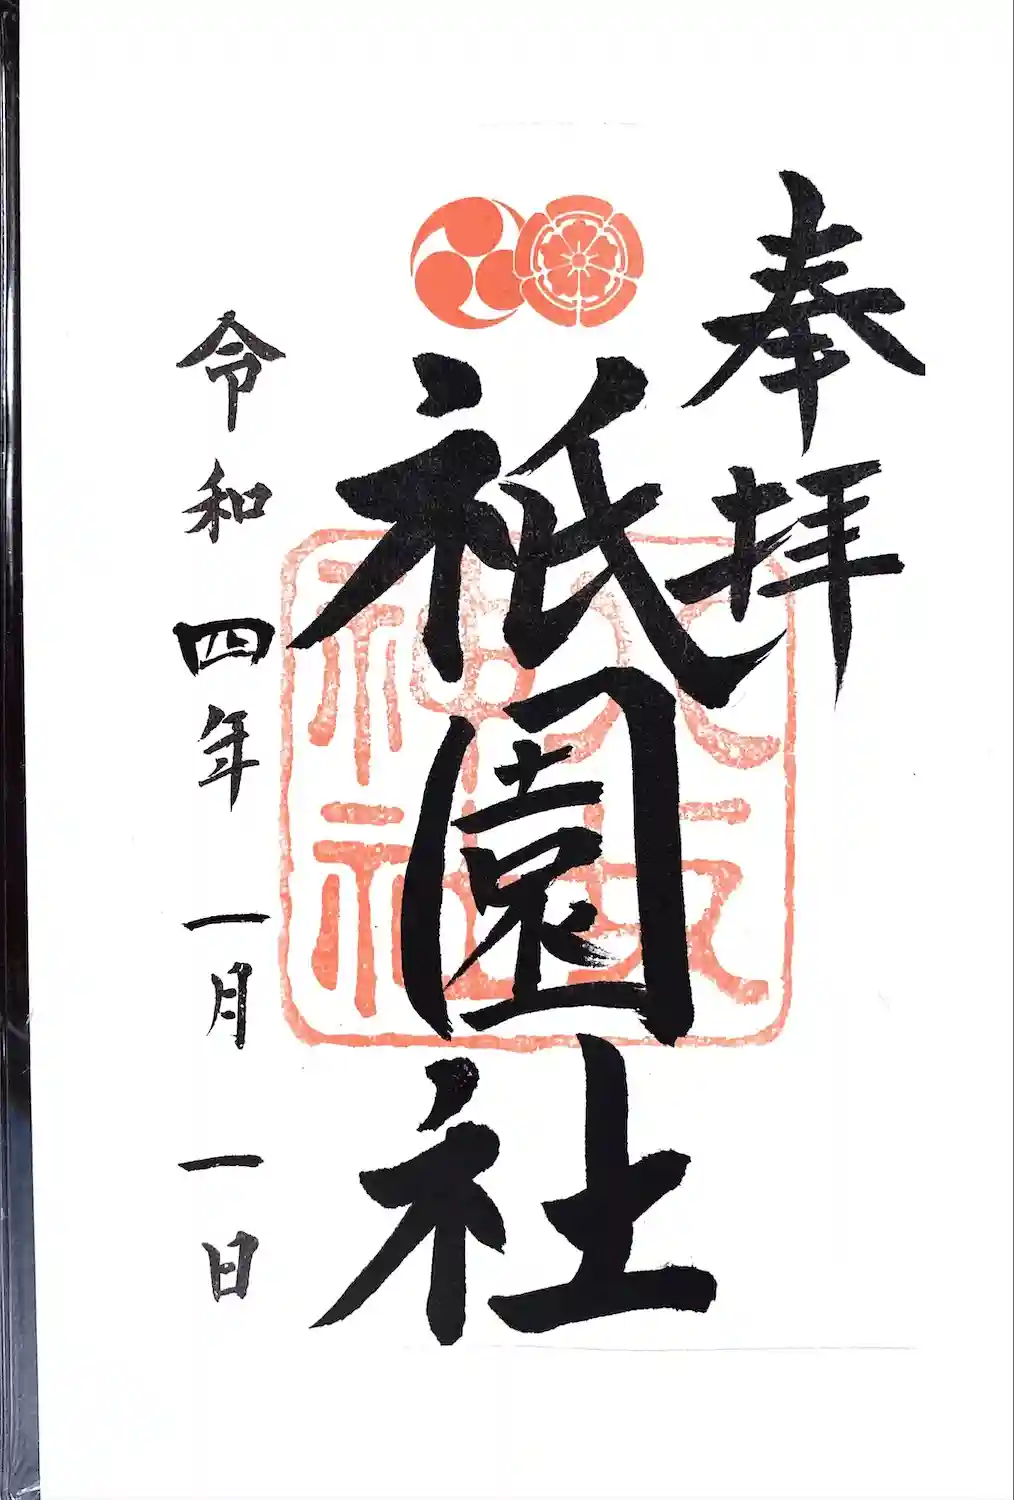 奉拝
祇園社
令和四年一月一日